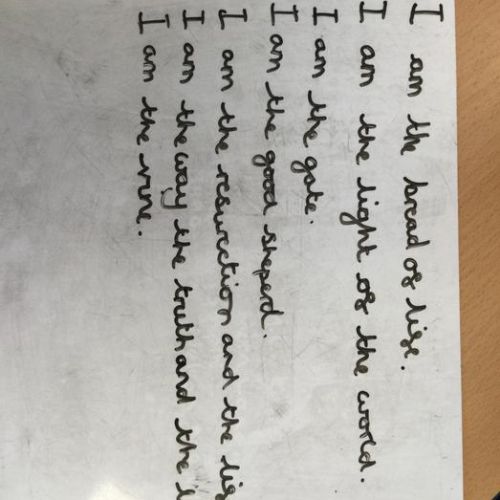 I am the bread of life.
I am the light of the world.
I am the gate.
I am the good sheperd.
I am the resurection and the
I am the way the truth and the
I am the vine.